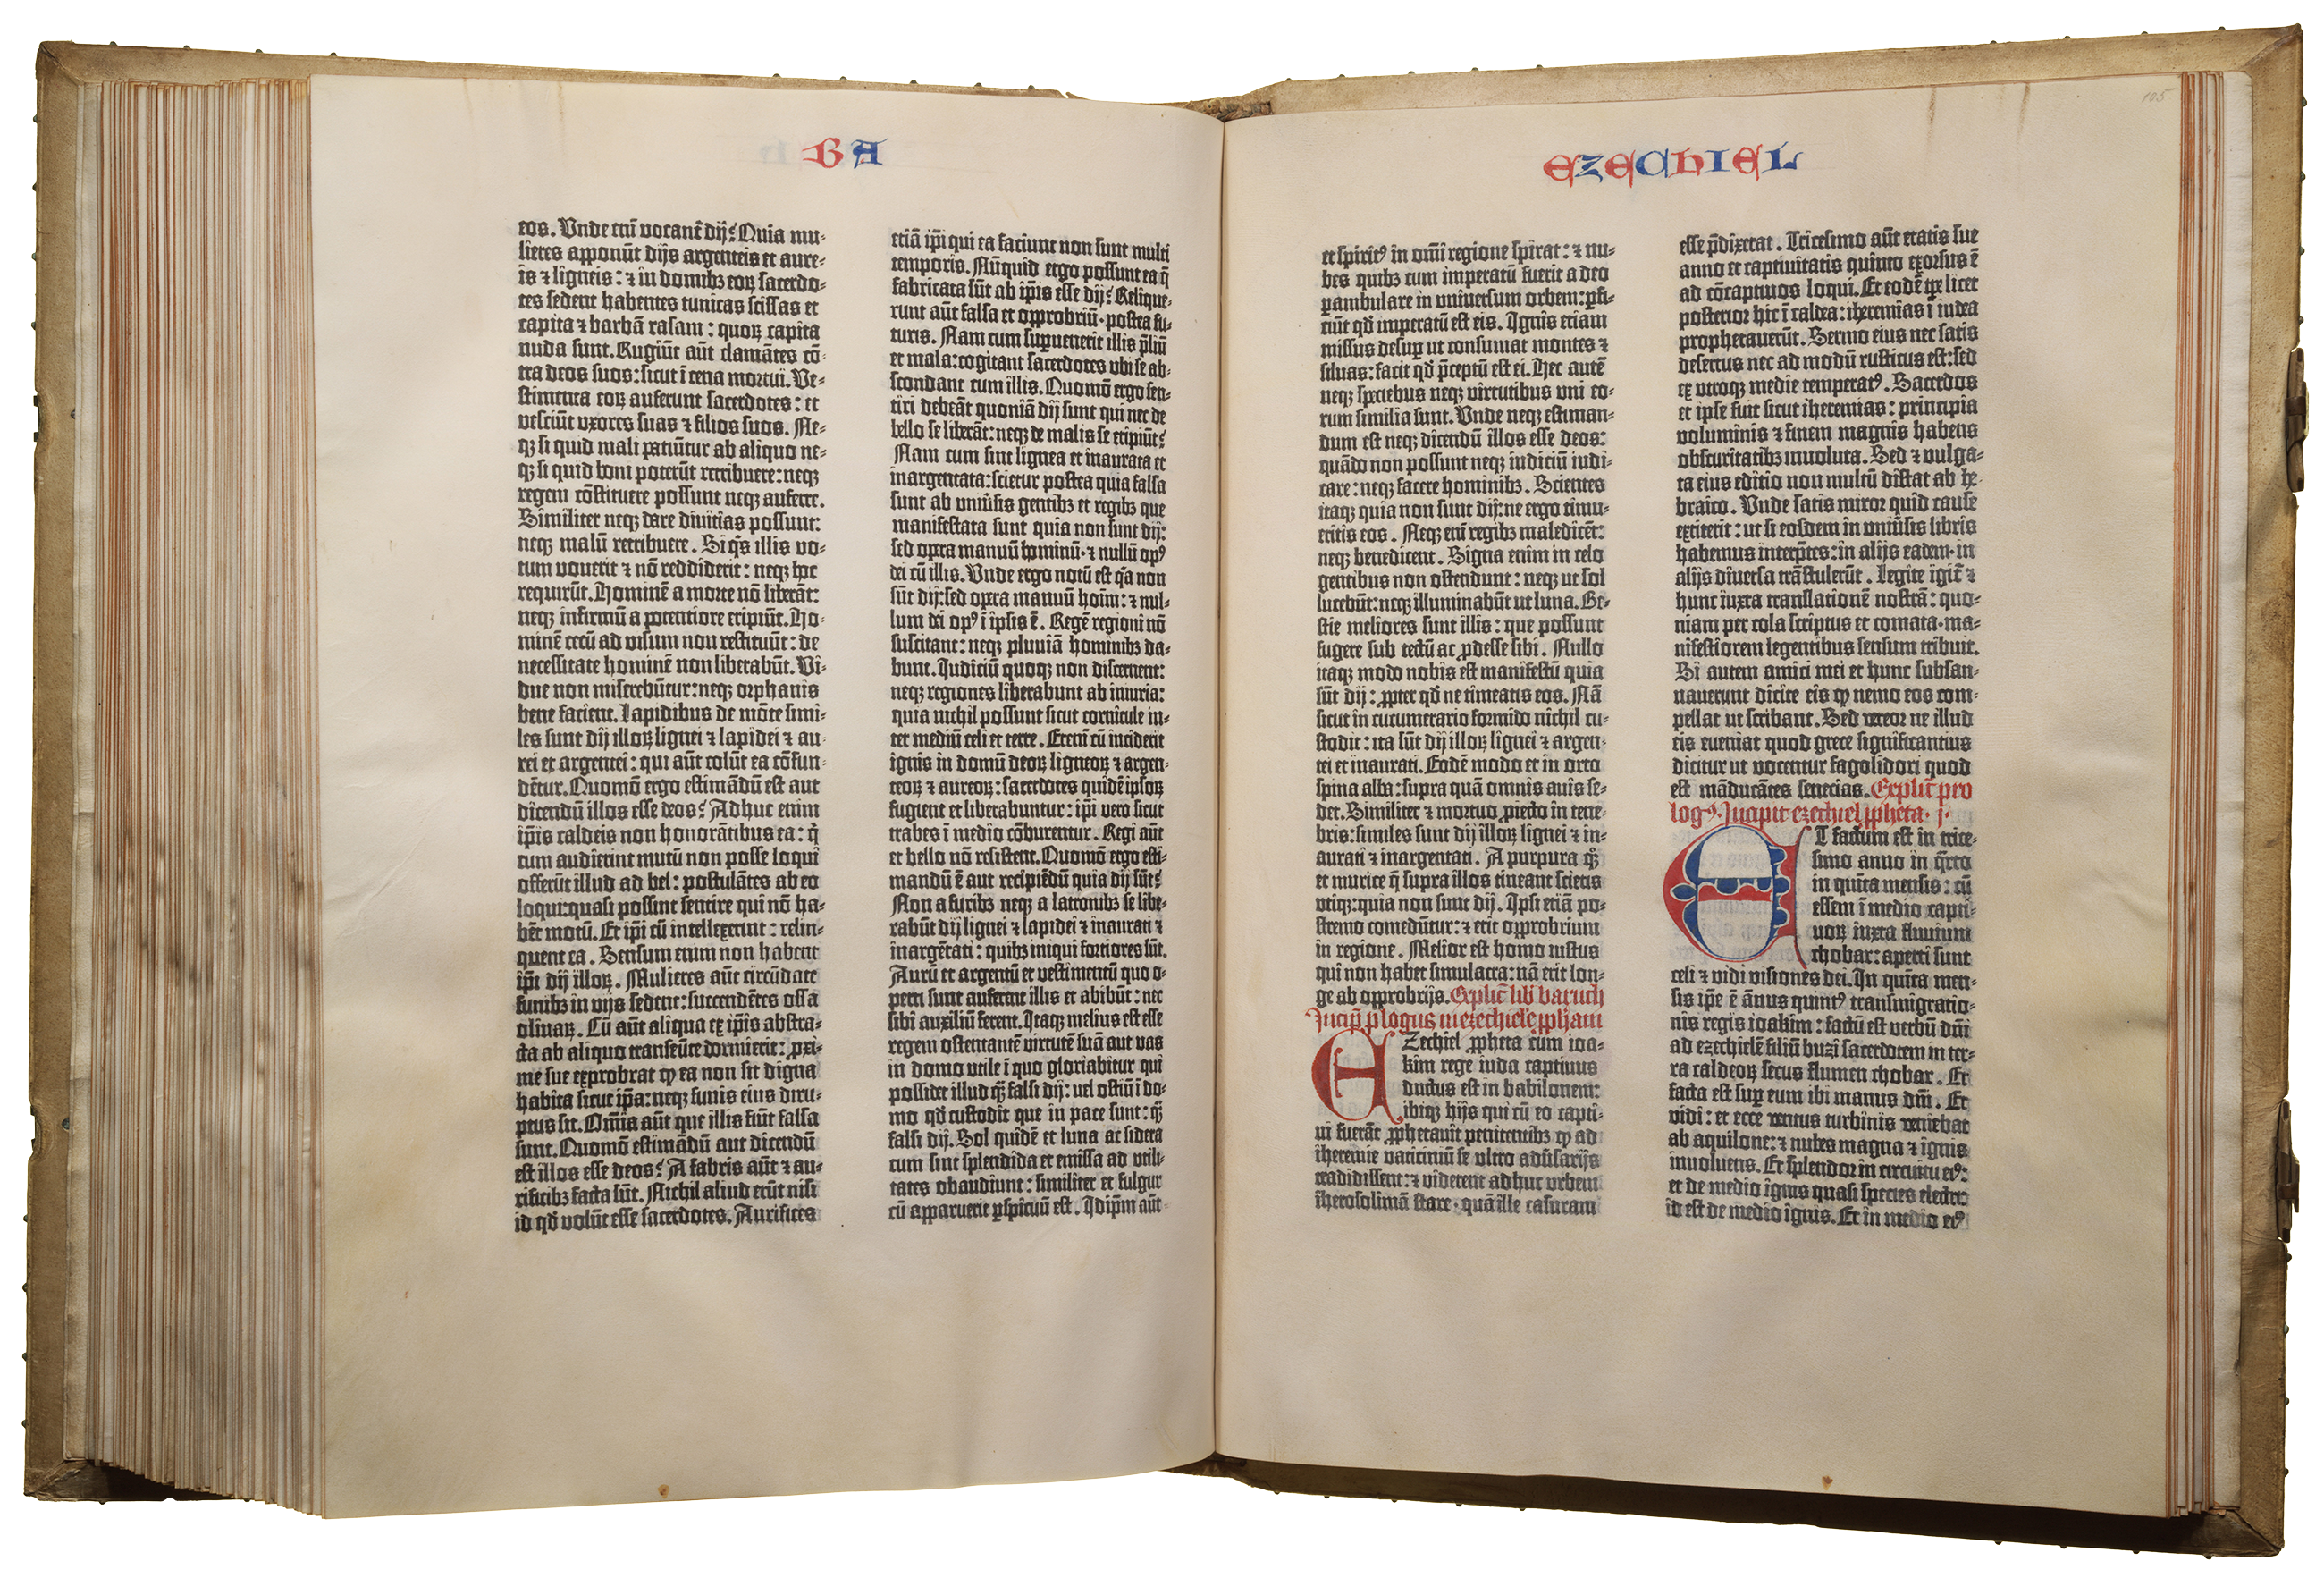 BA
eos. Vnde enī vocant᷑ dij? Quia mu-
lieres apponūt dijs argenteis et aure-
is ⁊ ligneis: ⁊ in domibꝫ eoꝝ sacerdo-
tes sedent habentes tunicas scissas et
capita ⁊ barbā rasam: quoꝝ capita
nuda sunt. Rugiūt aūt clamātes cō-
tra deos suos: sicut ī cena mortui. Ve-
stimenta eoꝝ auferunt sacerdotes: et
vestiūt vxores suas ⁊ filios suos. Ne-
qꝫ si quid mali patiūtur ab aliquo ne-
qꝫ si quid boni poterūt retribuere: neqꝫ
regem cōstituere possunt neqꝫ auferre.
Similiter neqꝫ dare diuitias possunt:
neqꝫ malū retribuere. Si q̄s illis vo-
tum vouerit ⁊ nō reddiderit: neqꝫ hoc
requirūt. Hominē a morte nō liberāt:
neqꝫ infirmū a potentiore eripiūt. Ho-
minē cecū ad visum non restituūt: de
necessitate hominē non liberabūt. Vi-
due non miserebūtur: neqꝫ orphanis
bene facient. Lapidibus de mōte simi-
les sunt dij illoꝝ lignei ⁊ lapidei ⁊ au-
rei et argentei: qui aūt colūt ea cōfun-
dētur. Quomō ergo estimādū est aut
dicendū illos esse deos? Adhuc enim
ip̄is caldeis non honorātibus ea: q̄
cum audierint mutū non posse loqui
offerūt illud ad bel: postulātes ab eo
loqui: quasi possint sentire qui nō ha-
bēt motū. Et ip̄i cū intellexerint: relin-
quent ea. Sensum enim non habent
ip̄i dij illoꝝ. Mulieres aūt circūdate
funibꝫ in vijs sedent: succendētes ossa
oliuaꝝ. Cū aūt aliqua ex ip̄is abstra-
cta ab aliquo transeūte dormierit: ꝓxi-
me sue exprobrat ꝙ ea non sit digna
habita sicut ip̄a: neqꝫ funis eius diru-
ptus sit. Om̄ia aūt que illis fiūt falsa
sunt. Quomō estimādū aut dicendū
est illos esse deos? A fabris aūt ⁊ au-
rificibꝫ facta sūt. Nichil aliud erūt nisi
id qd̄ volūt esse sacerdotes. Aurifices
etiā ip̄i qui ea faciunt non sunt multi
temporis. Nūquid ergo possunt ea q̄
fabricata sūt ab ip̄is esse dij? Relique-
runt aūt falsa et opprobriū. postea fu-
turis. Nam cum suꝑuenerit illis p̄liū
et mala: cogitant sacerdotes vbi se ab-
scondant cum illis. Quomō ergo sen-
tiri debeāt quoniā dij sunt qui nec de
bello se liberāt: neqꝫ de malis se eripiūt?
Nam cum sint lignea et inaurata et
inargentata: scietur postea quia falsa
sunt ab vniūsis gentibꝫ et regibꝫ que
manifestata sunt quia non sunt dij:
sed opera manuū hominū. ⁊ nullū opꝰ
dei cū illis. Vnde ergo notū est q̄a non
sūt dij: sed opera manuū hoīm: ⁊ nul-
lum dei opꝰ ī ipsis ē. Regē regioni nō
suscitant: neqꝫ pluuiā hominibꝫ da-
bunt. Iudiciū quoqꝫ non discernent:
neqꝫ regiones liberabunt ab iniuria:
quia nichil possunt sicut cornicule in-
ter mediū celi et terre. Etenī cū inciderit
ignis in domū deoꝝ ligneoꝝ ⁊ argen-
teoꝝ ⁊ aureoꝝ: sacerdotes quidē ipsoꝝ
fugient et liberabuntur: ip̄i vero sicut
trabes ī medio cōburentur. Regi aūt
et bello nō resistent. Quomō ergo esti-
mandū ē aut recipiēdū quia dij sūt?
Non a furibꝫ neqꝫ a latronibꝫ se libe-
rabūt dij lignei ⁊ lapidei ⁊ inaurati ⁊
inargētati: quibꝫ iniqui fortiores sūt.
Aurū et argentū et vestimentū quo o-
perti sunt auferent illis et abibūt: nec
sibi auxiliū ferent. Itaqꝫ melius est esse
regem ostentantē virtutē suā aut vas
in domo vtile ī quo gloriabitur qui
possidet illud qꝫ̄ falsi dij: uel ostiū ī do-
mo qd̄ custodit que in pace sunt: qꝫ̄
falsi dij. Sol quidē et luna ac sidera
cum sint splendida et emissa ad vtili-
tates obaudiunt: similiter et fulgur
cū apparuerit ꝑspicuū est. Idip̄m aūt
EZECHIEL
105
et spiritꝰ in om̄i regione spirat: ⁊ nu-
bes quibꝫ cum imperatū fuerit a deo
ꝑambulare in vniuersum orbem: ꝑfi-
ciūt qd̄ imperatū est eis. Ignis etiam
missus desuꝑ ut consumat montes ⁊
siluas: facit qd̄ p̄ceptū est ei. Hec autē
neqꝫ speciebus neqꝫ virtutibus vni eo-
rum similia sunt. Vnde neqꝫ estiman-
dum est neqꝫ dicendū illos esse deos:
quādo non possunt neqꝫ iudiciū iudi-
care: neqꝫ facere hominibꝫ. Scientes
itaqꝫ quia non sunt dij: ne ergo timu-
eritis eos. Neqꝫ enī regibꝫ maledicēt:
neqꝫ benedicent. Signa enim in celo
gentibus non ostendunt: neqꝫ ut sol
lucebūt: neqꝫ illuminabūt ut luna. Be-
stie meliores sunt illis: que possunt
fugere sub tectū ac ꝓdesse sibi. Nullo
itaqꝫ modo nobis est manifestū quia
sūt dij: ꝓpter qd̄ ne timeatis eos. Nā
sicut in cucumerario formido nichil cu-
stodit: ita sūt dij illoꝝ lignei ⁊ argen-
tei et inaurati. Eodē modo et in orto
spina alba: supra quā omnis auis se-
det. Similiter ⁊ mortuo ꝓiecto in tene-
bris: similes sunt dij illoꝝ lignei ⁊ in-
aurati ⁊ inargentati. A purpura qꝫ̄
et murice q̄ supra illos tineant scietis
vtiqꝫ: quia non sunt dij. Ipsi etiā po-
stremo comedūtur: ⁊ erit opprobrium
in regione. Melior est homo iustus
qui non habet simulacra: nā erit lon-
ge ab opprobrijs. Explic̄ lib̄ baruch
Incip̄ ꝓlogus in ezechielē ꝓphetam
EZechiel ꝓpheta cum ioa-
kim rege iuda captiuus
ductus est in babilonem:
ibiqꝫ hijs qui cū eo capti-
ui fuerāt ꝓphetauit penitentibꝫ ꝙ ad
iheremie vaticiniū se vltro adūsarijs
tradidissent: ⁊ viderent adhuc vrbem
iherosolimā stare. quā ille casuram
esse p̄dixerat. Tricesimo aūt etatis sue
anno et captiuitatis quinto exorsus ē
ad cōcaptiuos loqui. Et eodē tꝑe licet
posterior hic ī caldea: iheremias ī iudea
prophetauerūt. Sermo eius nec satis
desertus nec ad modū rusticus est: sed
ex vtroqꝫ medie temperatꝰ. Sacerdos
et ipse fuit sicut iheremias: principia
voluminis ⁊ finem magnis habens
obscuritatibꝫ inuoluta. Sed ⁊ vulga-
ta eius editio non multū distat ab he-
braico. Vnde satis miror quid cause
extiterit: ut si eosdem in vniūsis libris
habemus interp̄tes: in alijs eadem. in
alijs diuersa trāstulerūt. Legite igit᷑ ⁊
hunc iuxta translationē nostrā: quo-
niam per cola scriptus et comata. ma-
nifestiorem legentibus sensum tribuit.
Si autem amici mei et hunc subsan-
nauerunt dicite eis ꝙ nemo eos com-
pellat ut scribant. Sed vereor ne illud
eis eueniat quod grece significantius
dicitur ut vocentur fagolidori quod
est māducātes senecias. Explic̄ pro
logꝰ. Incipit ezechiel ꝓpheta. j.
ET factum est in trice-
simo anno in q̄rto
in quīta mensis: cū
essem ī medio capti-
uoꝝ iuxta fluuium
chobar: aperti sunt
celi ⁊ vidi visiones dei. In quīta men-
sis ip̄e ē ānus quintꝰ transmigratio-
nis regis ioakim: factū est verbū dn̄i
ad ezechielē filiū buzi sacerdotem in ter-
ra caldeoꝝ secus flumen chobar. Et
facta est suꝑ eum ibi manus dn̄i. Et
vidi: et ecce ventus turbinis veniebat
ab aquilone: ⁊ nubes magna ⁊ ignis
inuoluens. Et splendor in circuitu eiꝰ:
et de medio ignis quasi species electri:
id est de medio ignis. Et in medio eiꝰ